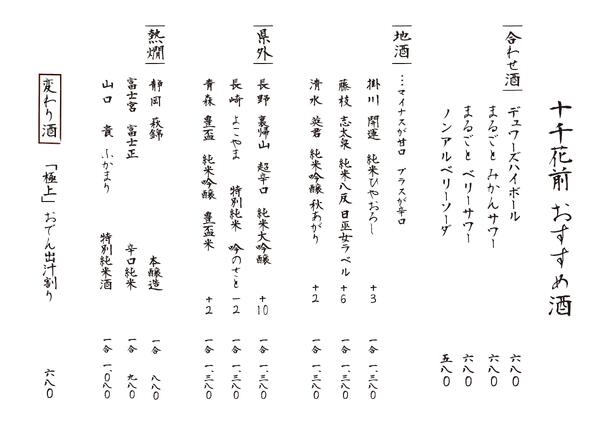 十千花前 おすすめ酒
合わせ酒
デュワーズハイボール 六八〇
まるごと みかんサワー 六八〇
まるごと ベリーサワー 六八〇
ノンアルベリーソーダ 五八〇
地酒
…マイナスが甘口 プラスが辛口
掛川 開運 純米ひやおろし +3 一合 一、三八〇
藤枝 志太泉 純米八反 日巫女ラベル +6 一合 一、三八〇
清水 英君 純米吟醸 秋あがり +2 一合 一、三八〇
県外
長野 裏帰山 超辛口 純米大吟醸 +10 一合 一、三八〇
長崎 よこやま 特別純米 吟のさと −2 一合 一、三八〇
青森 豊盃 純米吟醸 豊盃米 +2 一合 一、三八〇
熱燗
静岡 萩錦 本醸造 一合 八八〇
富士宮 富士正 辛口純米 一合 九八〇
山口 貴 ふかまり 特別純米酒 一合 一、〇八〇
変わり酒
「極上」おでん出汁割り 六八〇